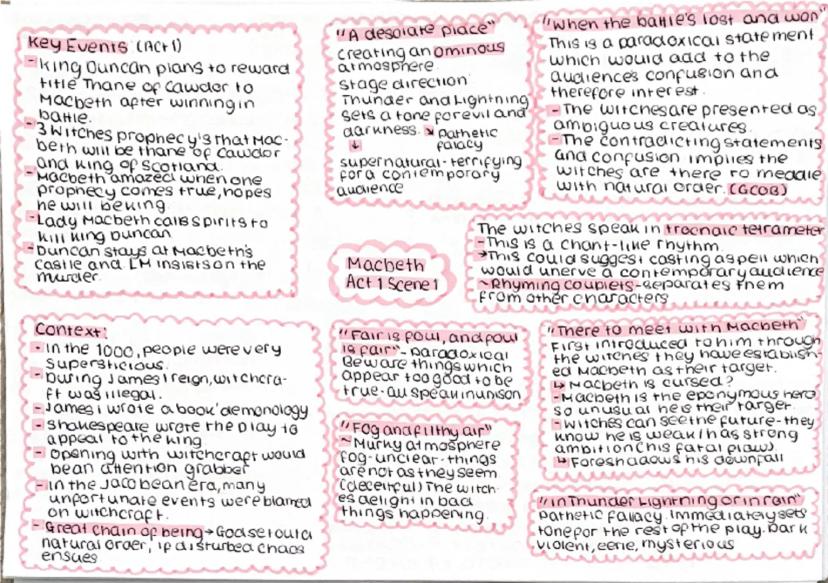 Key Events (Act 1)
- King Duncan plans to reward
title Thane of Cawdor to
Macbeth after winning in
battle.
- 3 Witches prophecy's that Mac-
beth will be thane of Cawdor
and King of Scotland.
- Macbeth amazed when one
prophecy comes true, hopes
he will be king.
- Lady Macbeth calls spirits to
kill king Duncan
- Duncan stays at Macbeth's
castle and LM insists on the
murder.
"A desolate place"
creating an ominous
atmosphere.
stage direction
Thunder and Lightning
sets a tone for evil and
darkness. ↘ Pathetic
↓ falacy
supernatural - terrifying
for a contemporary
audience
"When the battle's lost and won"
This is a paradoxical statement
which would add to the
audiences confusion and
therefore interest.
- The witches are presented as
ambiguous creatures.
- The contradicting statements
and confusion implies the
witches are there to meddle
with natural order. (GCOB)
The witches speak in trochaic tetrameter
- This is a chant-like rhythm.
→ This could suggest casting a spell which
would unerve a contemporary audience
- Rhyming couplets - separates them
from other characters
Macbeth
Act 1 Scene 1
Context:
- In the 1000, people were very
superstitious.
- During James I reign, witchcra-
ft was illegal.
- James I wrote a book 'demonology
- Shakespeare wrote the play to
appeal to the king
- Opening with witchcraft would
bean attention grabber
- In the Jacobean era, many
unfortunate events were blamed
on witchcraft.
- Great Chain of being → God set out a
natural order, if disturbed chaos
ensues
"Fair is foul, and foul
is fair" - paradoxical
Beware things which
appear too good to be
true - all speak in unison
"Fog and filthy air"
- Murky atmosphere
fog - unclear - things
are not as they seem
(deceitful) The witch-
es delight in bad
things happening.
"There to meet with Macbeth"
First introduced to him through
the witches they have establish-
ed Macbeth as their target.
↳ Macbeth is cursed?
- Macbeth is the eponymous hero
so unusual he is their target.
- Witches can see the future - they
know he is weak/has strong
ambition (his fatal flaw)
↳ Foreshadows his downfall
"In Thunder Lightning or in rain"
Pathetic fallacy. Immediately sets
tone for the rest of the play. Dark
violent, eerie, mysterious